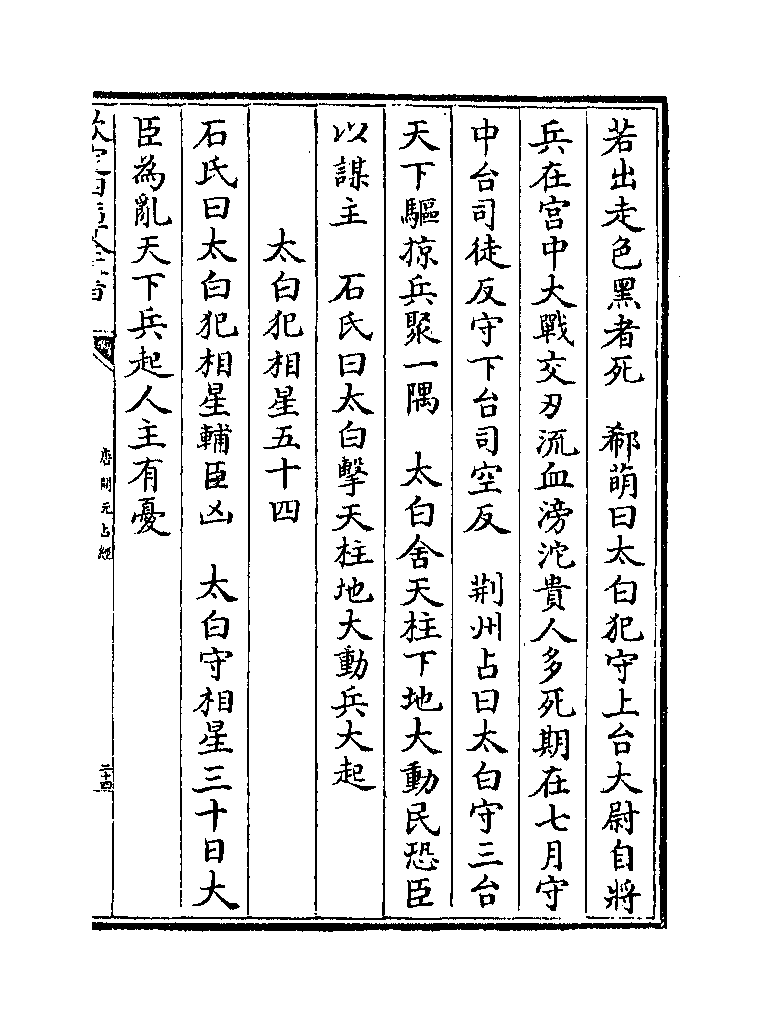 若出走色黑者死　郗萌曰太白犯守上台大尉自將
兵在宮中大戰交刃流血滂沱貴人多死期在七月守
中台司徒反守下台司空反　荆州占曰太白守三台
天下驅掠兵聚一隅　太白舍天柱下地大動民恐臣
以謀主　石氏曰太白擊天柱地大動兵大起
太白犯相星五十四
石氏曰太白犯相星輔臣凶　太白守相星三十日大
臣為亂天下兵起人主有憂
唐開元占經
二十四